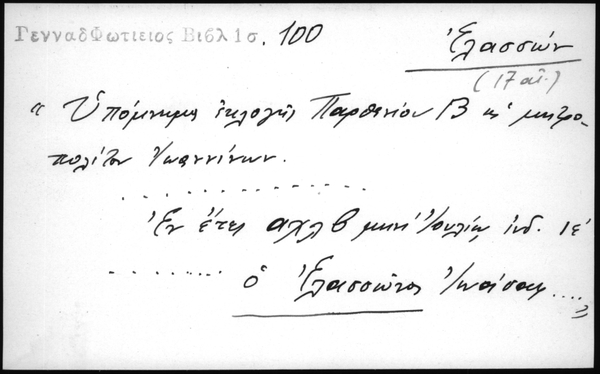 ΓενναδΦωτιειος Βιβλ 1 σ. 100
Ἐλασσών
(17 αἰ.)
« Ὑπόμνημα ἐκλογῆς Παρθενίου Β ὡς μητρο-
πολίτου Ἰωαννίνων.
..................
Ἐν ἔτει αχλβ μηνὶ Ἰουλίῳ, ἰνδ. ιε΄
..........
ὁ Ἐλασσῶνος Ἰωάσαφ ....»